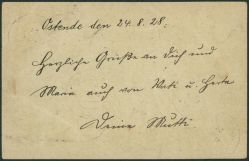 Ostende den 24. 8. 28.
Herzliche Grüße an Dich und
Maria auch von Vati u. Herta
Deine Mutti